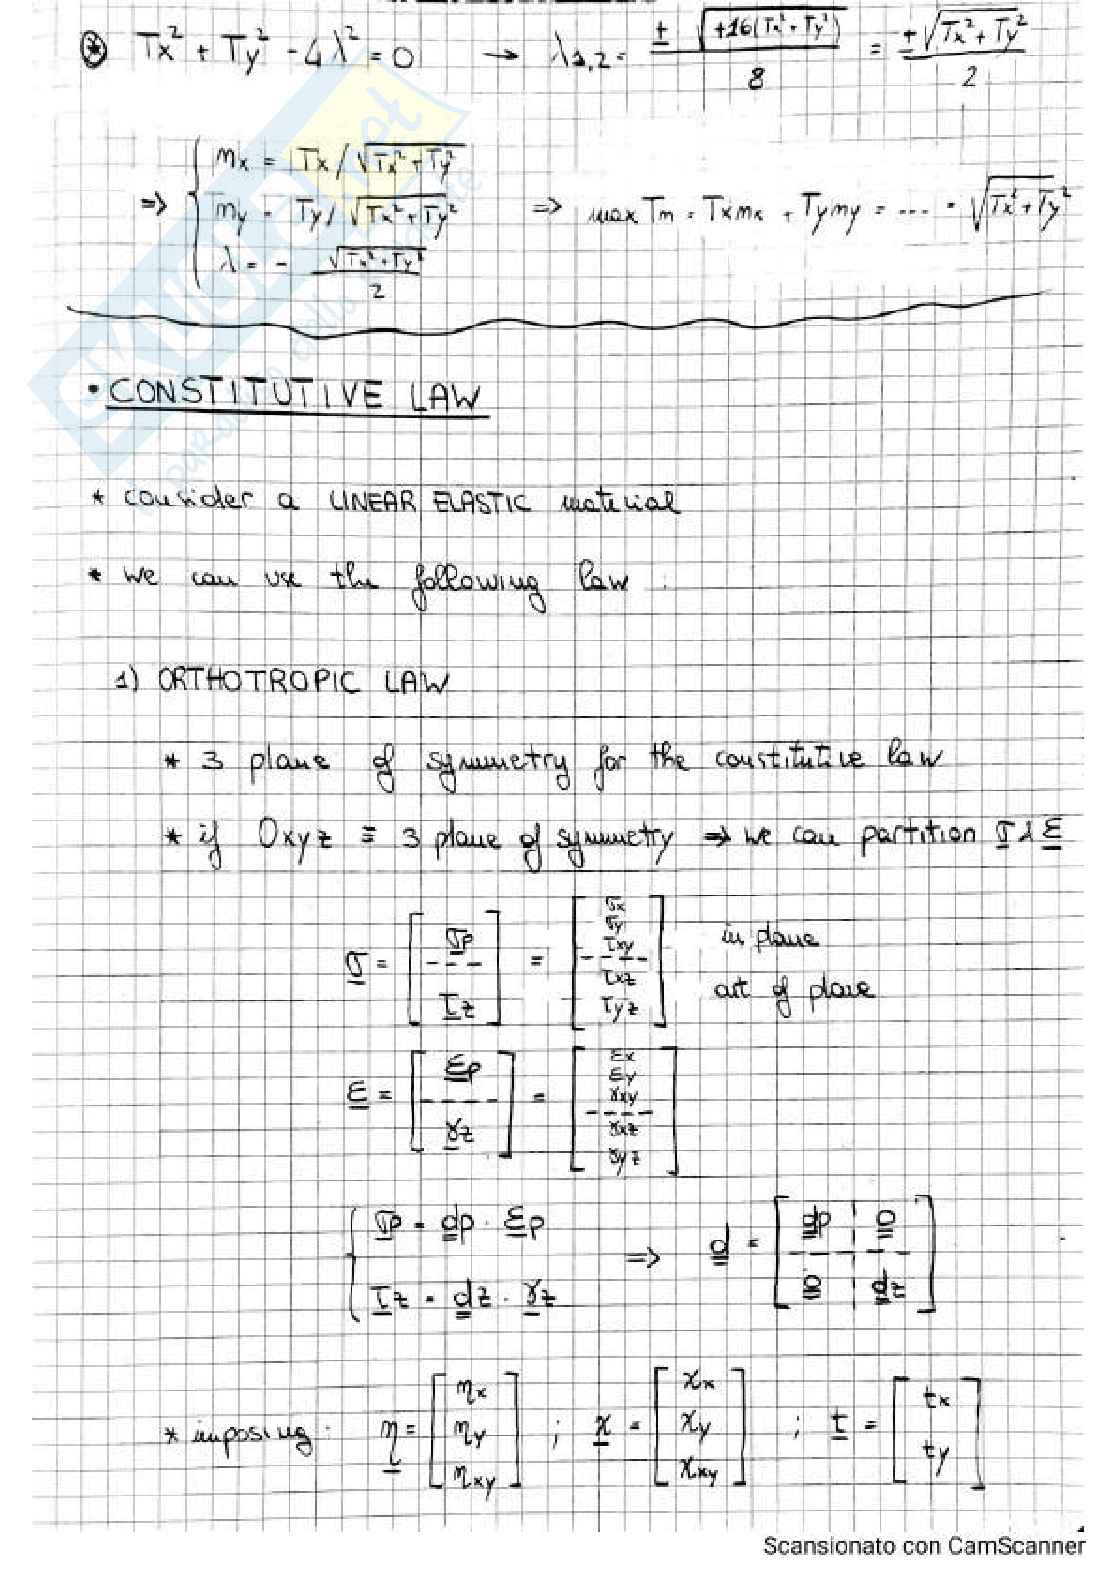 ⊛ Tx² + Ty² - 4λ² = 0 → λ1,2 = ± √(+16(Tx² + Ty²)) / 8 = ± √(Tx² + Ty²) / 2
⇒ { mx = Tx / √(Tx² + Ty²)
my = Ty / √(Tx² + Ty²) ⇒ max Tm = Txmx + Tymy = .... = √(Tx² + Ty²)
λ = - √(Tx² + Ty²) / 2
• CONSTITUTIVE LAW
* consider a LINEAR ELASTIC material
* we can use the following law :
1) ORTHOTROPIC LAW
* 3 plane of symmetry for the constitutive law
* if Oxyz ≡ 3 plane of symmetry ⇒ we can partition σ & ε
σ = [ σp / τz ] = [ σx σy τxy / τxz τyz ] in plane
out of plane
ε = [ εp / γz ] = [ εx εy γxy / γxz γyz ]
{ σp = dp · εp
τz = dz · γz ⇒ d = [ dp 0 / 0 dz ]
* imposing : η = [ ηx ηy ηxy ] ; χ = [ χx χy χxy ] ; t = [ tx ty ]
Scansionato con CamScanner